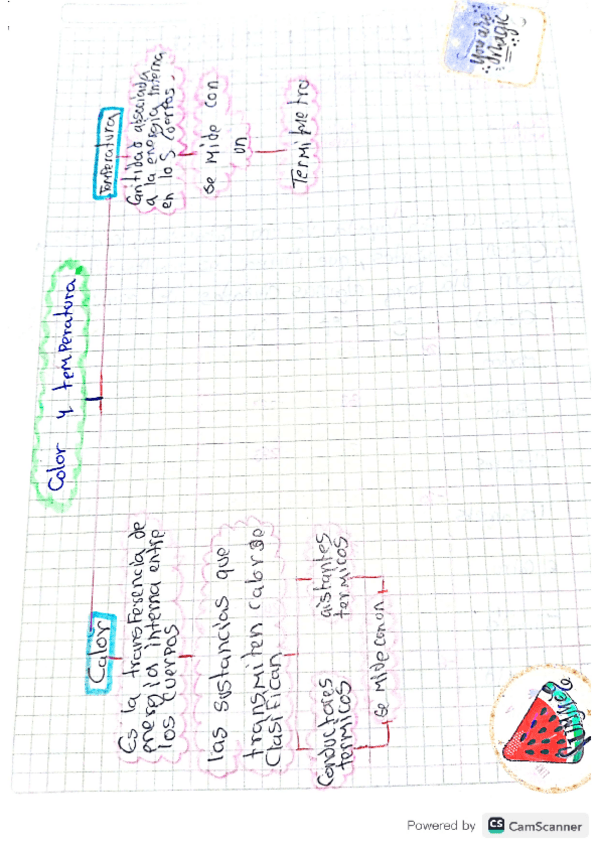 Color y temperatura
Calor
Es la transferencia de
energia interna entre
los cuerpos
las sustancias que
transmiten calor se
Clasifican
Conductores
termicos
aislantes
termicos
se mide con un
Temperatura
Cantidad asociada
a la energia interna
en los cuerpos.
se mide con
un
Termimetro
You are
Magic
Powered by CS CamScanner